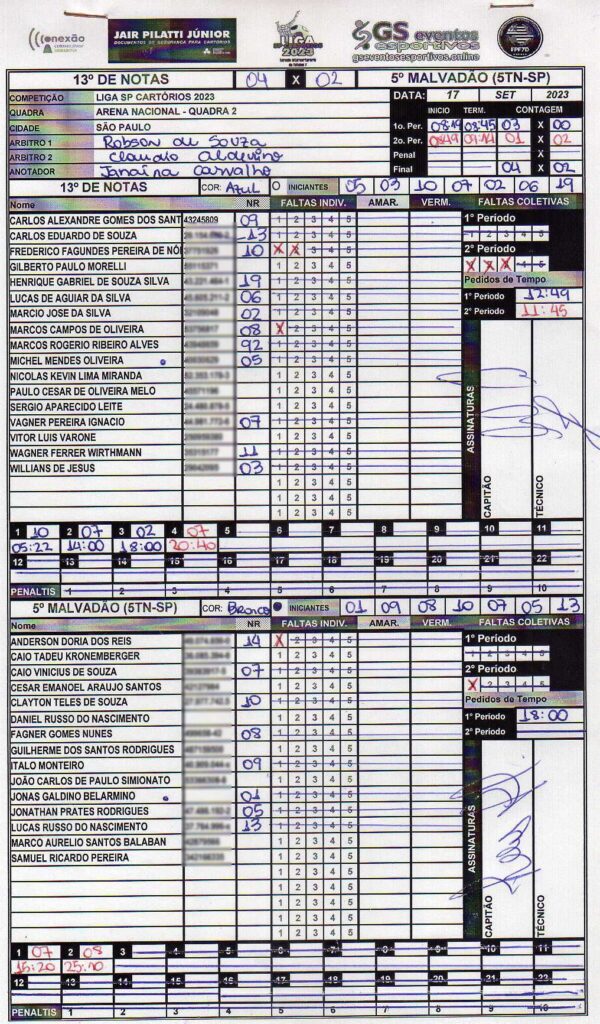 conexão
JAIR PILATTI JÚNIOR
DOCUMENTOS DE SEGURANÇA PARA CARTÓRIOS
LIGA
2023
GS eventos esportivos
gseventosesportivos.online
FPF7D
13º DE NOTAS 04 X 02 5º MALVADÃO (5TN-SP)
COMPETIÇÃO LIGA SP CARTÓRIOS 2023
DATA: 17 SET 2023
QUADRA ARENA NACIONAL - QUADRA 2
INICIO TERM. CONTAGEM
CIDADE SÃO PAULO
1o. Per. 08:19 08:45 03 X 00
ARBITRO 1 Robson de Souza
2o. Per. 08:49 09:14 01 X 02
ARBITRO 2 Claudio Alduino
Penal X
ANOTADOR Janaína Carvalho
Final 04 X 02
13º DE NOTAS COR: AZUL O INICIANTES 05 03 10 07 02 06 19
Nome NR FALTAS INDIV. AMAR. VERM. FALTAS COLETIVAS
CARLOS ALEXANDRE GOMES DOS SANT 43245809 09 1 2 3 4 5
1º Período
1 2 3 4 5
CARLOS EDUARDO DE SOUZA 13 1 2 3 4 5
FREDERICO FAGUNDES PEREIRA DE NÓ 10 X X 3 4 5
2º Período
X X X 4 5
GILBERTO PAULO MORELLI 1 2 3 4 5
HENRIQUE GABRIEL DE SOUZA SILVA 19 1 2 3 4 5
Pedidos de Tempo
LUCAS DE AGUIAR DA SILVA 06 1 2 3 4 5
1º Periodo 12:49
MARCIO JOSE DA SILVA 02 1 2 3 4 5
2º Periodo 11:45
MARCOS CAMPOS DE OLIVEIRA 08 X 2 3 4 5
MARCOS ROGERIO RIBEIRO ALVES 92 1 2 3 4 5
MICHEL MENDES OLIVEIRA 05 1 2 3 4 5
NICOLAS KEVIN LIMA MIRANDA 1 2 3 4 5
PAULO CESAR DE OLIVEIRA MELO 1 2 3 4 5
SERGIO APARECIDO LEITE 1 2 3 4 5
VAGNER PEREIRA IGNACIO 07 1 2 3 4 5
VITOR LUIS VARONE 1 2 3 4 5
WAGNER FERRER WIRTHMANN 11 1 2 3 4 5
WILLIANS DE JESUS 03 1 2 3 4 5
1 2 3 4 5
1 2 3 4 5
1 2 3 4 5
ASSINATURAS
CAPITÃO
TÉCNICO
1 10 2 07 3 02 4 07 5 6 7 8 9 10 11
05:22 14:00 18:00 20:40
12 13 14 15 16 17 18 19 20 21 22
PENALTIS 1 2 3 4 5 6 7 8 9 10
5º MALVADÃO (5TN-SP) COR: Branco INICIANTES 01 09 08 10 07 05 13
Nome NR FALTAS INDIV. AMAR. VERM. FALTAS COLETIVAS
ANDERSON DORIA DOS REIS 14 X 2 3 4 5
1º Período
1 2 3 4 5
CAIO TADEU KRONEMBERGER 1 2 3 4 5
CAIO VINICIUS DE SOUZA 07 1 2 3 4 5
2º Período
X 2 3 4 5
CESAR EMANOEL ARAUJO SANTOS 1 2 3 4 5
CLAYTON TELES DE SOUZA 10 1 2 3 4 5
Pedidos de Tempo
DANIEL RUSSO DO NASCIMENTO 1 2 3 4 5
1º Periodo 18:00
FAGNER GOMES NUNES 08 1 2 3 4 5
2º Periodo
GUILHERME DOS SANTOS RODRIGUES 1 2 3 4 5
ITALO MONTEIRO 09 1 2 3 4 5
JOÃO CARLOS DE PAULO SIMIONATO 1 2 3 4 5
JONAS GALDINO BELARMINO 01 1 2 3 4 5
JONATHAN PRATES RODRIGUES 05 1 2 3 4 5
LUCAS RUSSO DO NASCIMENTO 13 1 2 3 4 5
MARCO AURELIO SANTOS BALABAN 1 2 3 4 5
SAMUEL RICARDO PEREIRA 1 2 3 4 5
1 2 3 4 5
1 2 3 4 5
1 2 3 4 5
1 2 3 4 5
1 2 3 4 5
ASSINATURAS
CAPITÃO
TÉCNICO
1 07 2 08 3 4 5 6 7 8 9 10 11
15:20 25:10
12 13 14 15 16 17 18 19 20 21 22
PENALTIS 1 2 3 4 5 6 7 8 9 10